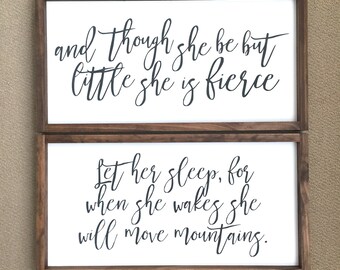 and though she be but
little she is fierce
Let her sleep, for
when she wakes she
will move mountains.